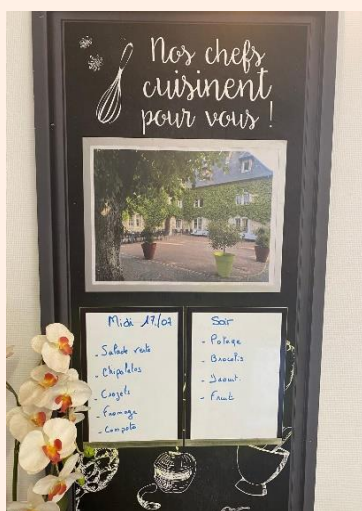 Nos chefs
cuisinent
pour vous !
Midi 17/07
- Salade verte
- Chipolatas
- Crozets
- Fromage
- Compote
Soir
- Potage
- Brocolis
- Yaourt
- Fruit